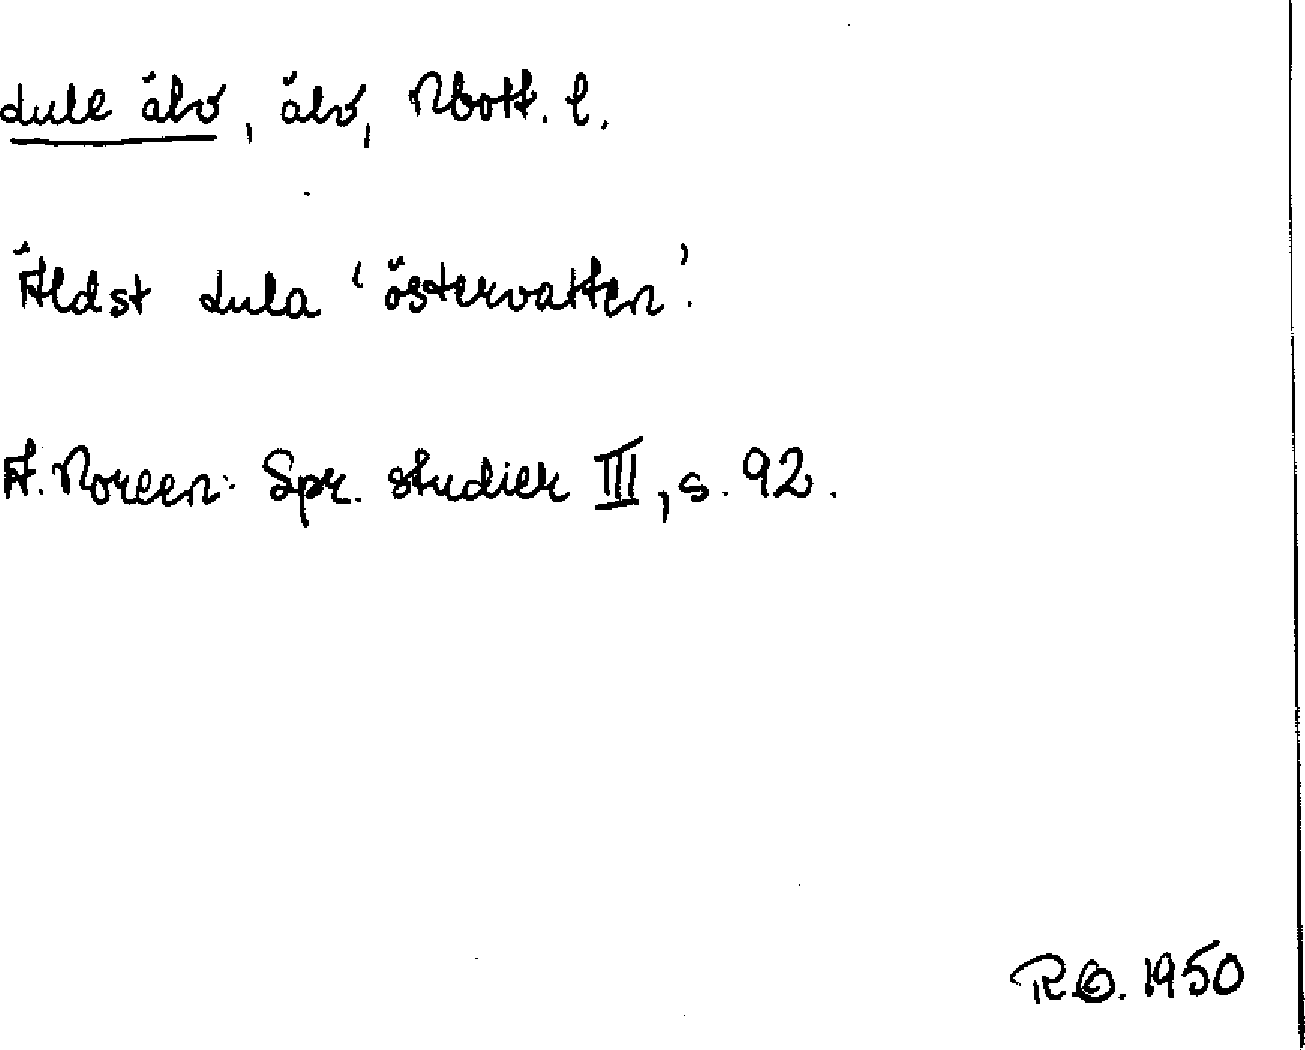 Lule älv, älv, Nbott. l.
Äldst Lula 'östervatten'.
A. Noreen: Spr. studier III, s. 92.
R.Ö. 1950